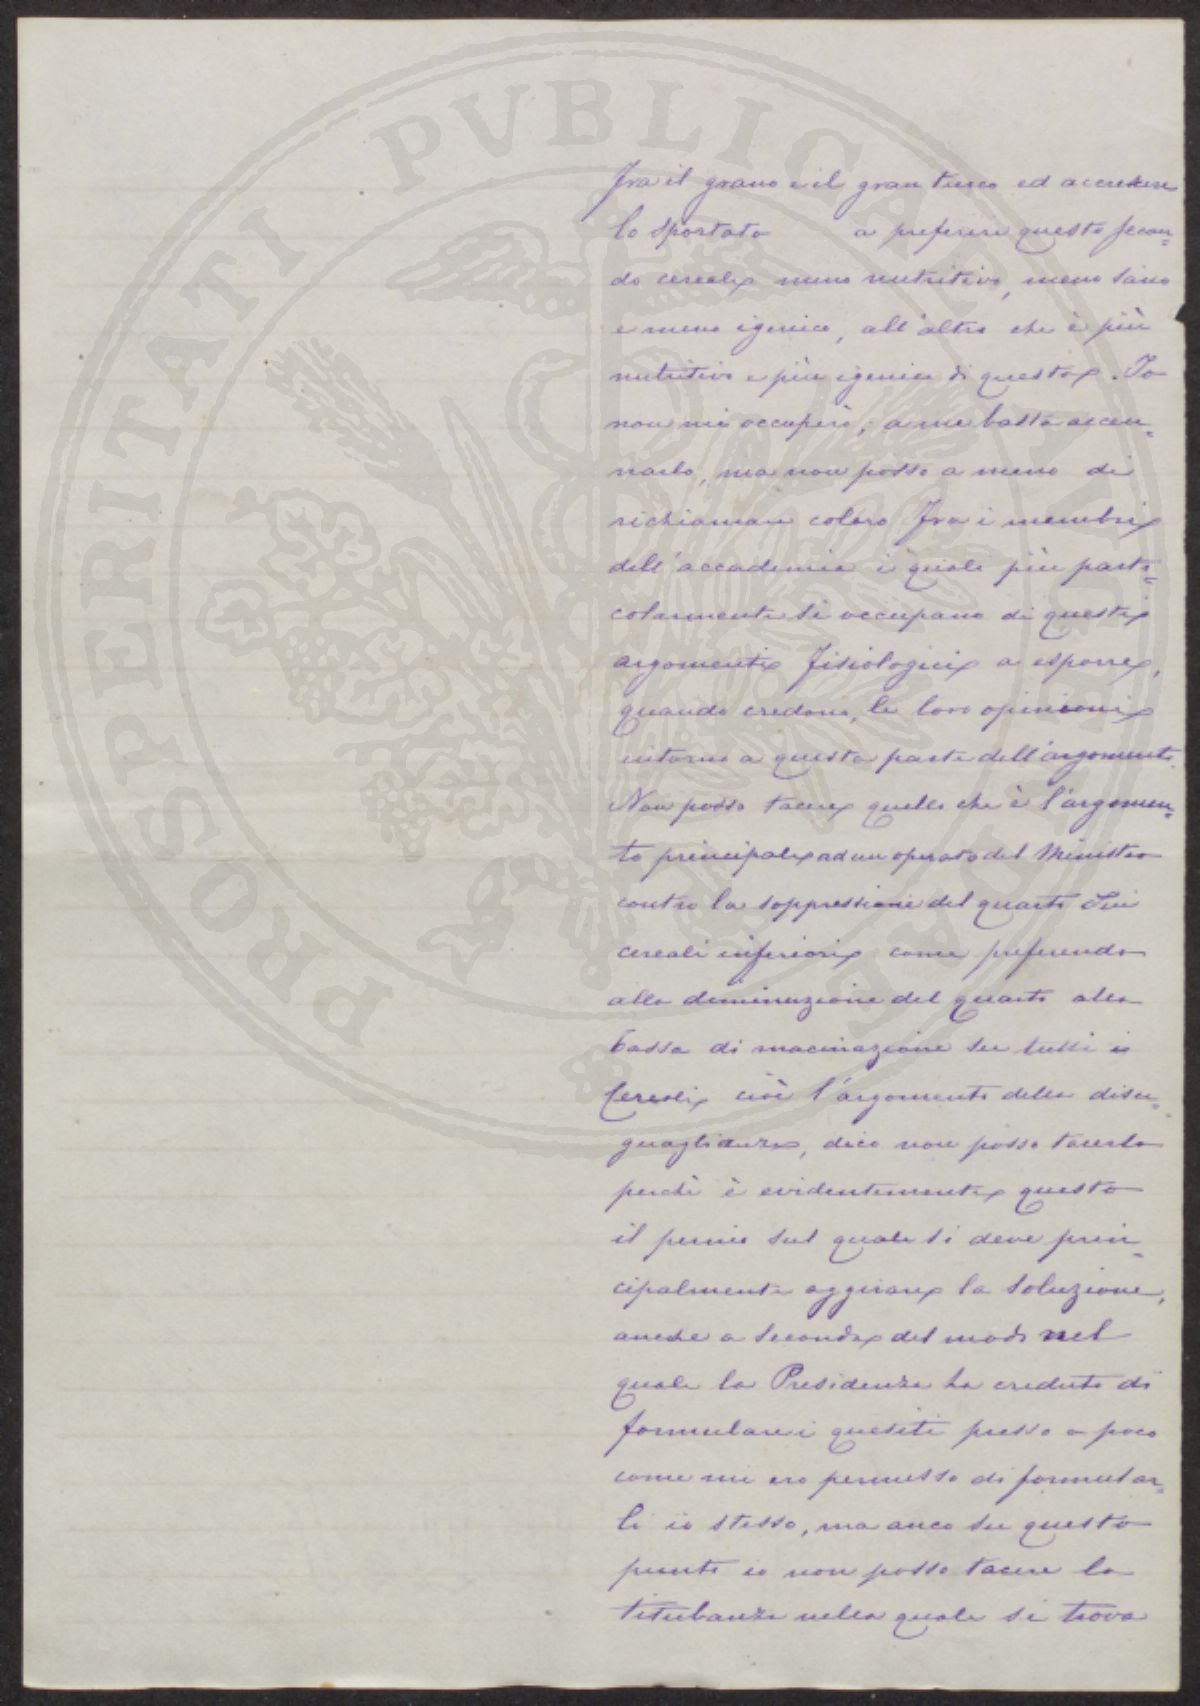 PROSPERITATI PVBLICAE
fra il grano e il gran turco ed accrescere
lo spostato a preferire questo secon=
do cereale meno nutritivo, meno sano
e meno igenico, all'altro che è più
nutritivo e più igenico di questo. Io
non mi occuperò, a me basta accen=
narlo, ma non posso a meno di
richiamare coloro fra i membri
dell'accademia i quali più parti=
colarmente si occupano di questi
argomenti fisiologici a esporre,
quando credono, le loro opinioni
intorno a questa parte dell'argomento.
Non posso tacere quello che è l'argomen=
to principale ad un operato del Ministro
contro la soppressione del quarto sui
cereali inferiori come preferendo
alla diminuzione del quarto alla
tassa di macinazione su tutti i
Cereali cioè l'argomento della disu=
guaglianza, dico non posso tacerlo
perchè è evidentemente questo
il pernio sul quale si deve prin=
cipalmente aggirare la soluzione,
anche a seconda del modo nel
quale la Presidenza ha creduto di
formulare i quesiti presso a poco
come mi ero permesso di formular=
li io stesso, ma anco su questo
punto io non posso tacere la
titubanza nella quale si trova